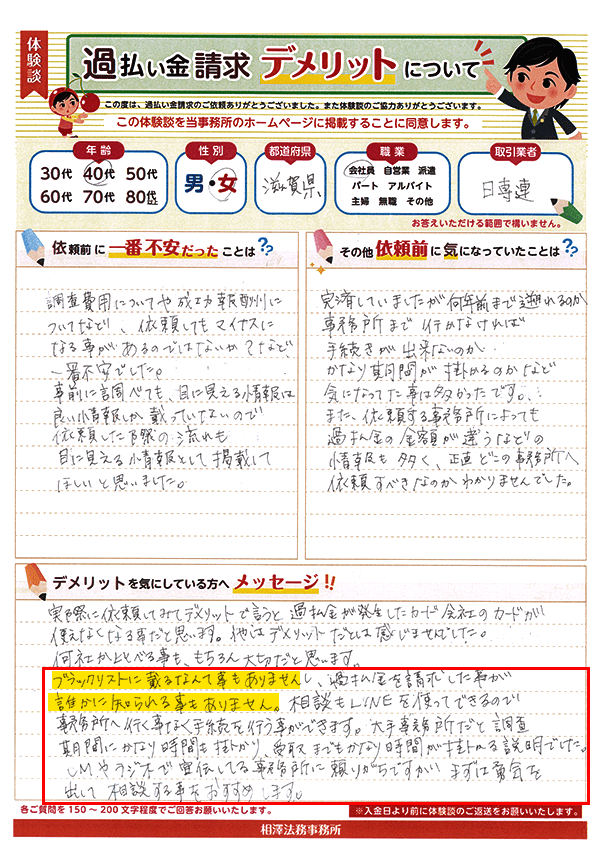 体験談
過払い金請求 デメリットについて
この度は、過払い金請求のご依頼ありがとうございました。また体験談のご協力ありがとうございます。
この体験談を当事務所のホームページに掲載することに同意します。
年齢
30代 40代 50代
60代 70代 80代以上
性別
男・女
都道府県
滋賀県
職業
会社員 自営業 派遣
パート アルバイト
主婦 無職 その他
取引業者
日専連
お答えいただける範囲で構いません。
依頼前に一番不安だったことは??
調査費用についてや成功報酬に
ついてなど、依頼してもマイナスに
なる事があるのではないか?など
一番不安でした。
事前に調べても、目に見える情報は
良い情報しか載っていないので
依頼した際の流れも
目に見える情報として掲載して
ほしいと思いました。
その他依頼前に気になっていたことは??
完済していましたが何年前まで遡れるのか
事務所まで行かなければ
手続きが出来ないのか
かなり期間が掛かるのかなど
気になってた事は多かったです。
また、依頼する事務所によっても
過払金の金額が違うなどの
情報も多く、正直どこの事務所へ
依頼すべきなのかわかりませんでした。
デメリットを気にしている方へメッセージ!!
実際に依頼してみてデメリットで言うと過払金が発生したカード会社のカードが
使えなくなる事だと思います。他はデメリットだとは感じませんでした。
何社か比べる事も、もちろん大切だと思います。
ブラックリストに載るなんて事もありませんし、過払金を請求した事が
誰かに知られる事もありません。相談もLINEを使ってできるので
事務所へ行く事なく手続を行う事ができます。大手事務所だと調査
期間にかなり時間も掛かり、受取までもかなり時間が掛かる説明でした。
CMやラジオで宣伝してる事務所に頼りがちですが、まずは勇気を
出して相談する事をおすすめします。
各ご質問を150~200文字程度でご回答お願いいたします。
※入金日より前に体験談のご返送をお願いいたします。
相澤法務事務所